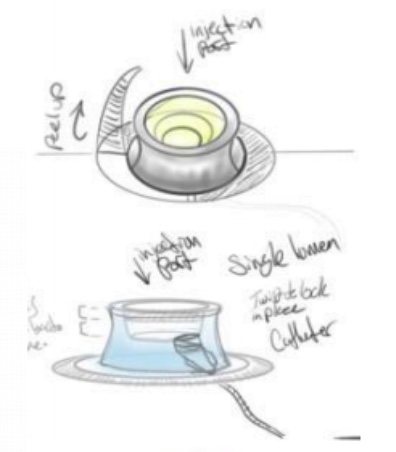 injection
Port
Peel up
injection
Port
Single lumen
Twist to lock
in place
Catheter